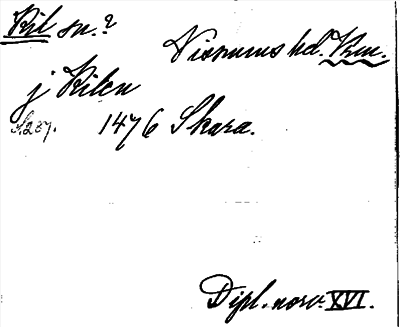 Kil sn.?
Visnums hd. Vrm.
j Kilen
S. 257. 1476 Skara.
Dipl. norv. XVI.